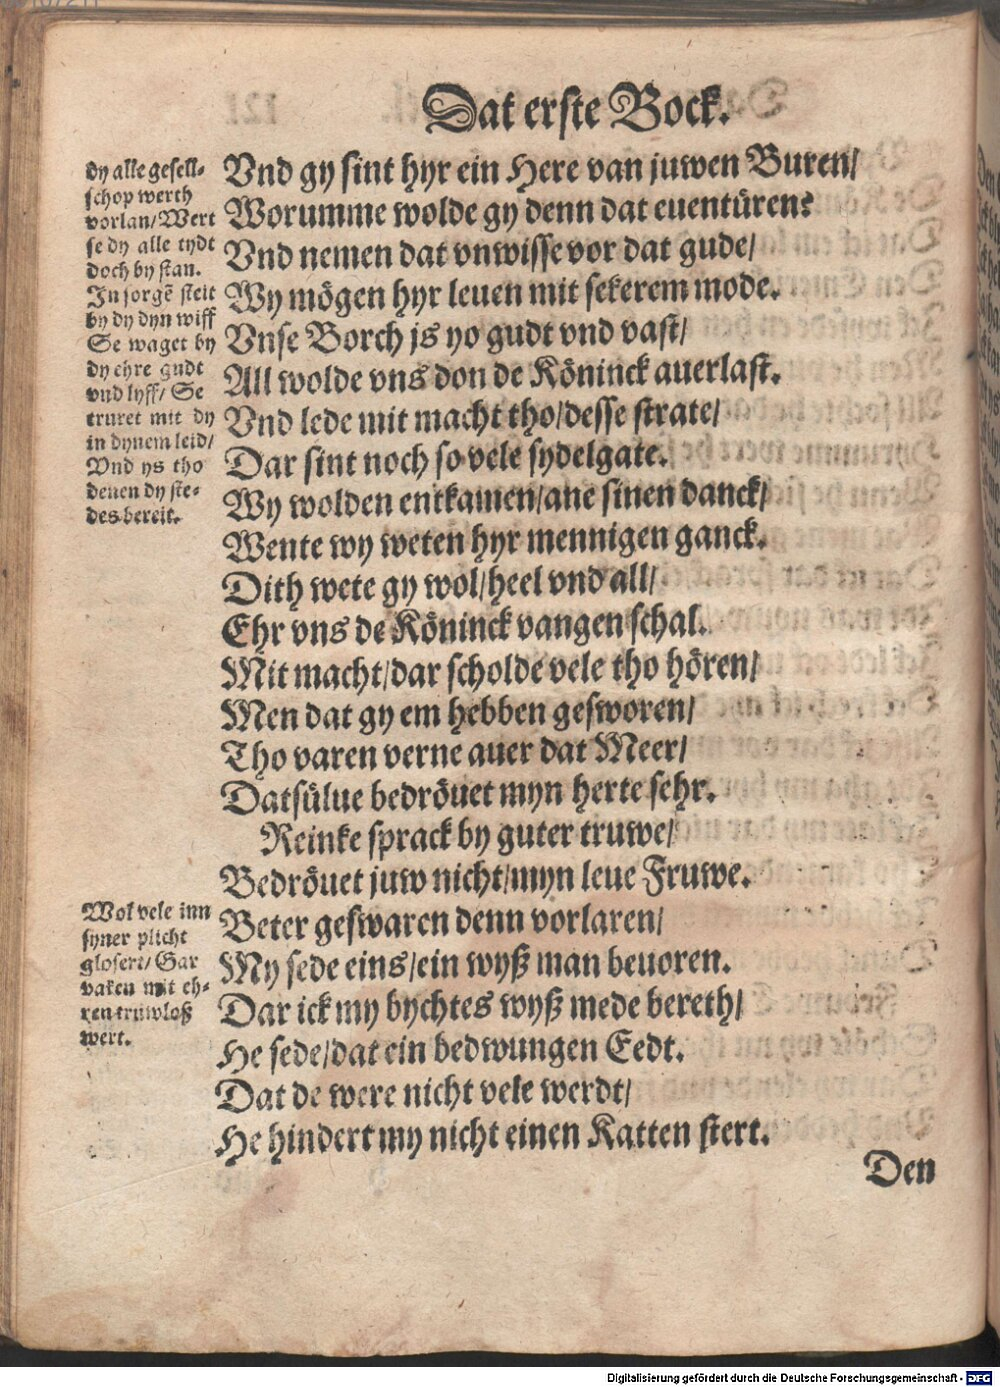 Dat erste Bock.
dy alle gesell-
schop werth
vorlan/Wert
se dy alle tydt
doch by stan.
In sorgē steit
by dy dyn wiff
Se waget by
dy ehre gudt
vnd lyff/ Se
truret mit dy
in dynem leid/
Vnd ys tho
denen dy ste-
des bereit.
Vnd gy sint hyr ein Here van juwen Buren/
Worumme wolde gy denn dat euentüren?
Vnd nemen dat vnwisse vor dat gude/
Wy mögen hyr leuen mit sekerem mode.
Vnse Borch js yo gudt vnd vast/
All wolde vns don de Köninck auerlast.
Vnd lede mit macht tho/desse strate/
Dar sint noch so vele sydelgate.
Wy wolden entkamen/ane sinen danck/
Wente wy weten hyr mennigen ganck.
Dith wete gy wol/heel vnd all/
Ehr vns de Köninck vangen schal.
Mit macht/dar scholde vele tho hören/
Men dat gy em hebben gesworen/
Tho varen verne auer dat Meer/
Datsülue bedröuet myn herte sehr.
Reinke sprack by guter truwe/
Bedröuet juw nicht/myn leue Fruwe.
Wol vele inn
syner plicht
glosert/Gar
vaken mit eh-
ren truwloß
wert.
Beter geswaren denn vorlaren/
My sede eins/ein wyß man beuoren.
Dar ick my bychtes wyß mede bereth/
He sede/dat ein bedwungen Eedt.
Dat de were nicht vele werdt/
He hindert my nicht einen Katten stert.
Den
Digitalisierung gefördert durch die Deutsche Forschungsgemeinschaft - DFG